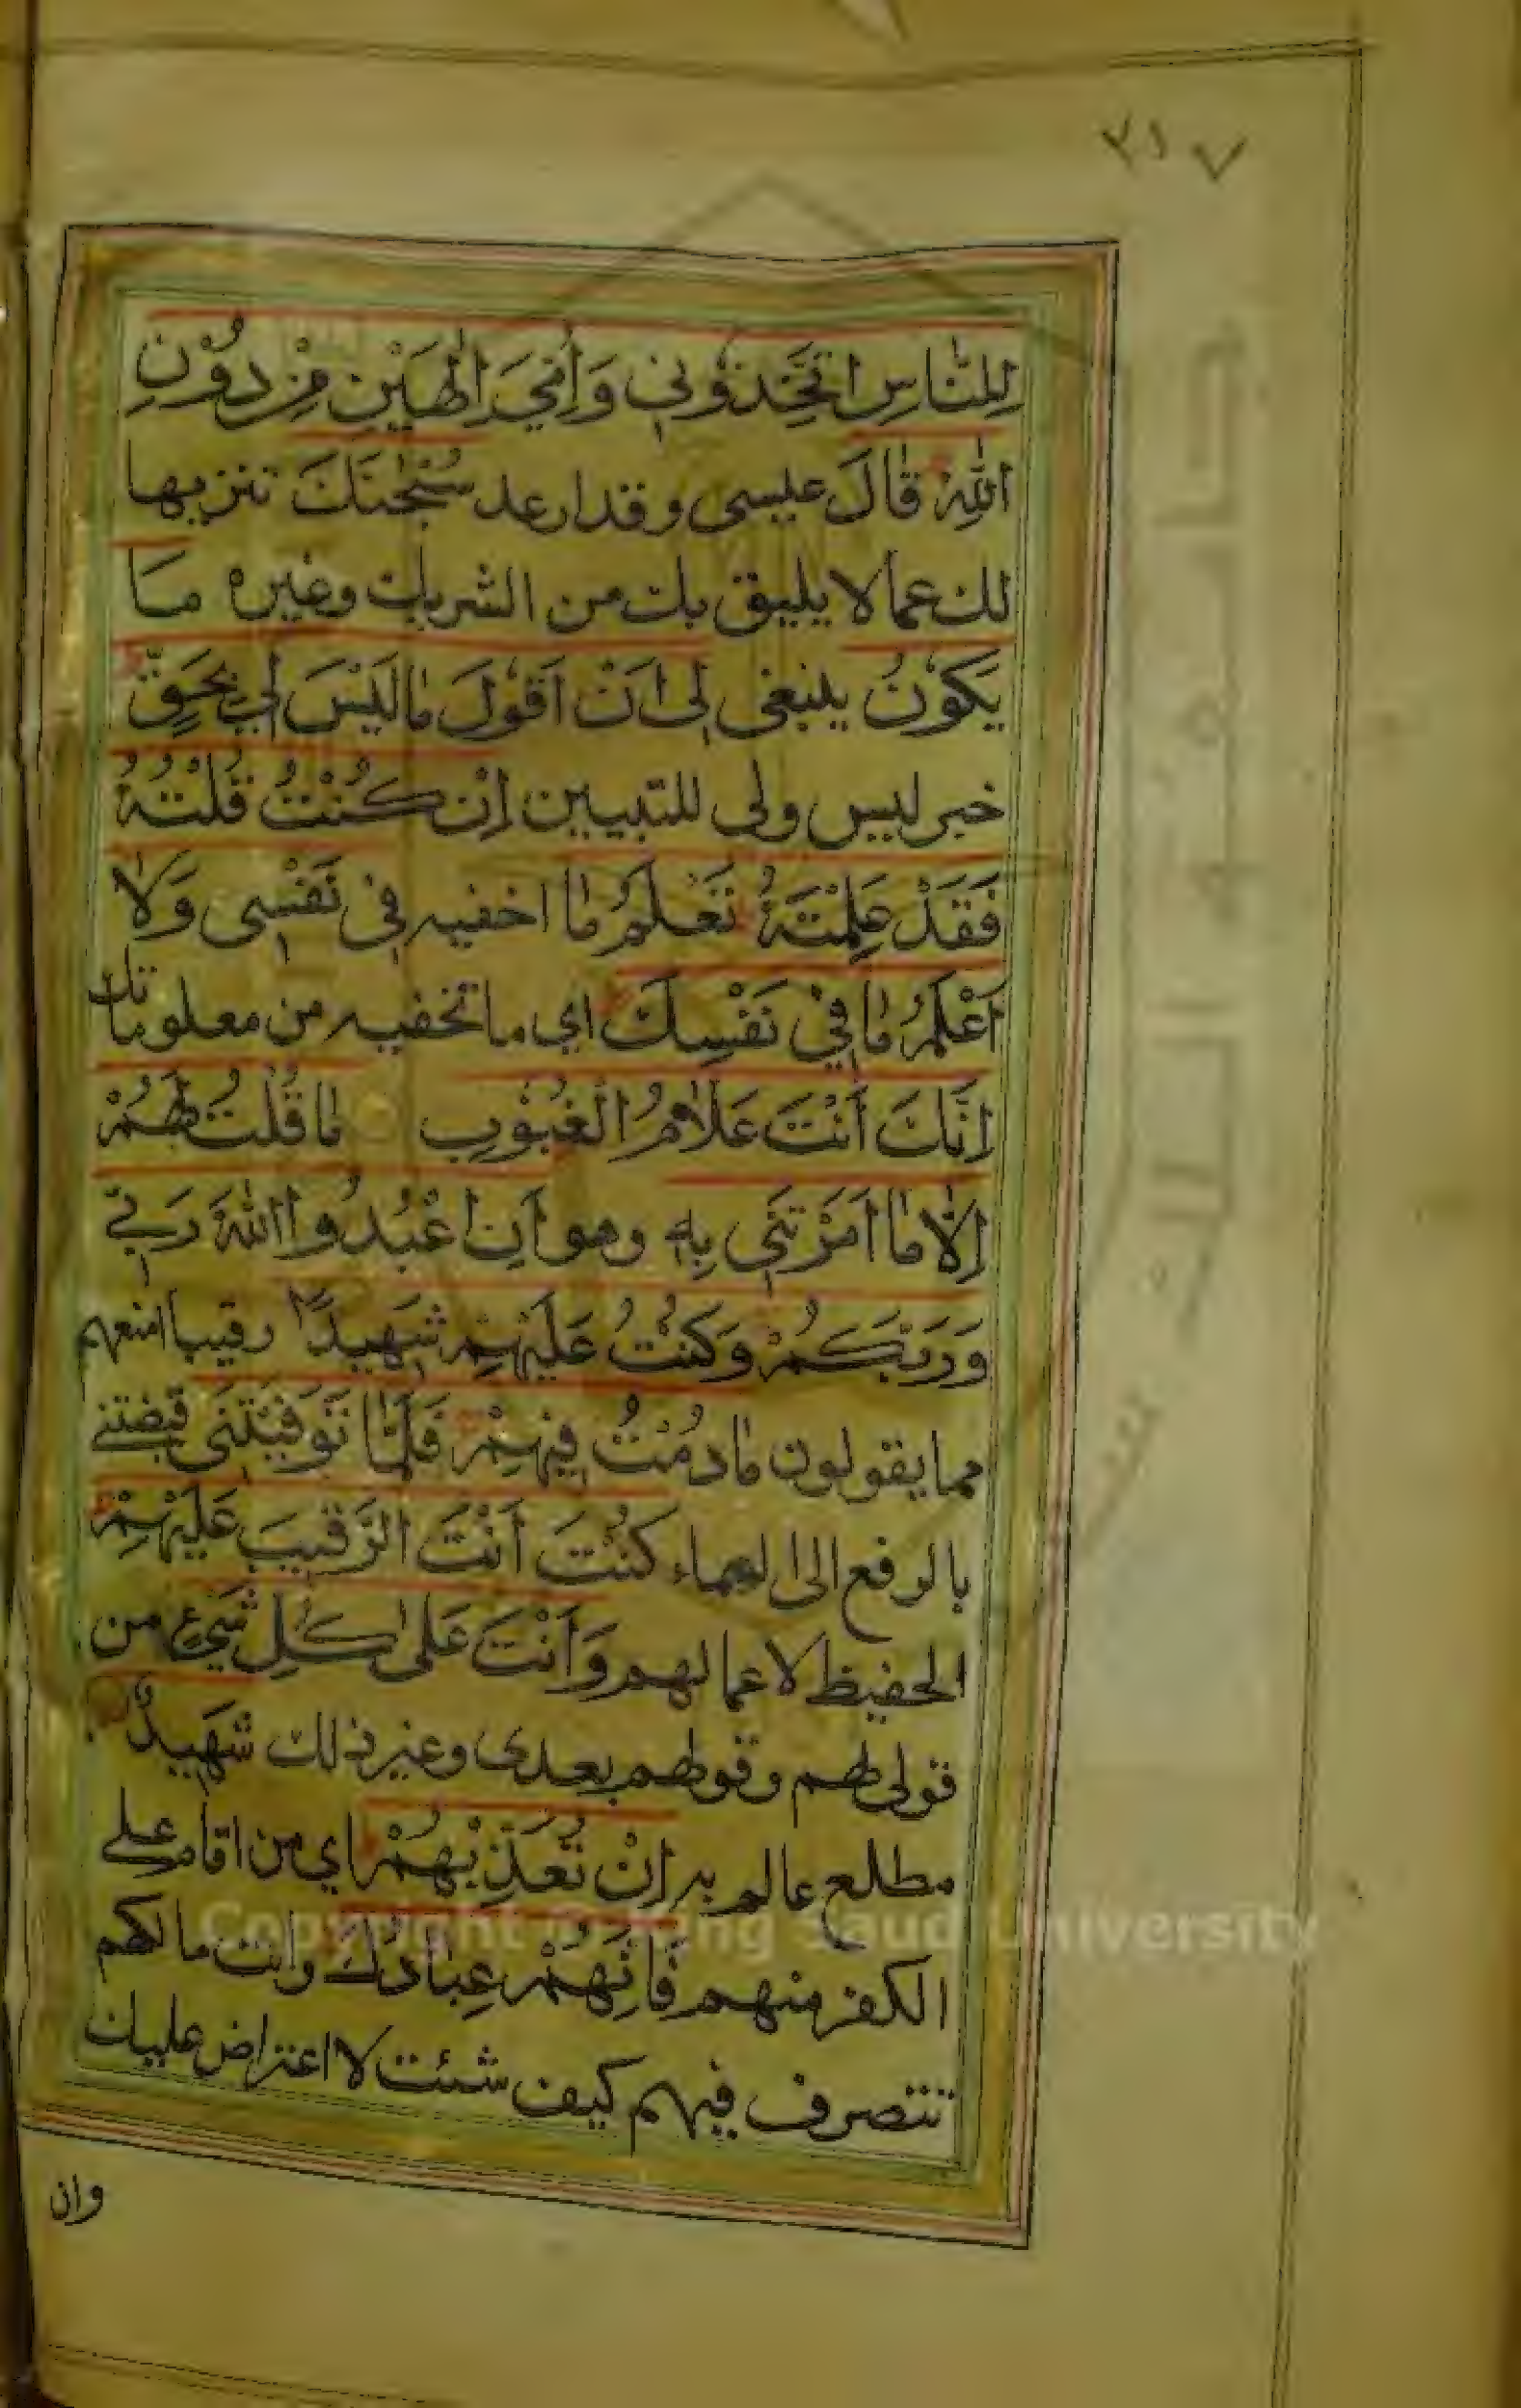 ٢١٧
لِلنَّاسِ اتَّخِذُونِي وَأُمِّيَ إِلٰهَيْنِ مِنْ دُوْنِ
اللّٰهِ قَالَ عيسى وقد ارعد سُبْحٰنَكَ تنزيها
لك عما لا يليق بك من الشريك وغيره مَا
يَكُوْنُ ينبغى لِى اَنْ اَقُوْلَ مَا لَيْسَ لِي بِحَقٍّ
خبر ليس ولى للتبيين اِنْ كُنْتُ قُلْتُهُ
فَقَدْ عَلِمْتَهُ تَعْلَمُ مَا اخفيه فِى نَفْسِى وَلَا
اَعْلَمُ مَا فِي نَفْسِكَ اي ما تخفيه من معلوماتك
اِنَّكَ اَنْتَ عَلَّامُ الْغُيُوْبِ مَا قُلْتُ لَهُمْ
اِلَّا مَا اَمَرْتَنِى بِهِ وهو اَنِ اعْبُدُوا اللّٰهَ رَبِّي
وَرَبَّكُمْ وَكُنْتُ عَلَيْهِمْ شَهِيْدًا رقيبا امنعهم
مما يقولون مَا دُمْتُ فِيْهِمْ فَلَمَّا تَوَفَّيْتَنِى قبضتنى
بالرفع الى السماء كُنْتَ اَنْتَ الرَّقِيْبَ عَلَيْهِمْ
الحفيظ لاعمالهم وَاَنْتَ عَلٰى كُلِّ شَيْءٍ من
قولى لهم وقولهم بعدى وغير ذلك شَهِيْدٌ
مطلع عالم به اِنْ تُعَذِّبْهُمْ اي من اقام على
الكفر منهم فَاِنَّهُمْ عِبَادُكَ وانت مالكهم
تتصرف فيهم كيف شئت لا اعتراض عليك
وان
Copyright © King Saud University